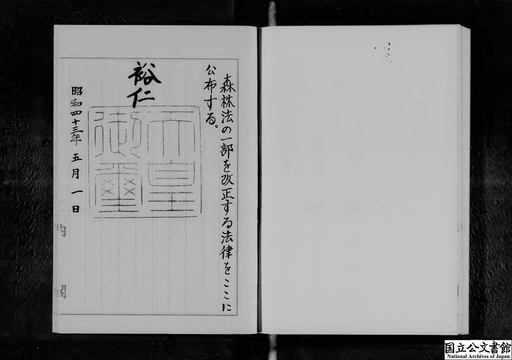 森林法の一部を改正する法律をここに
公布する。
裕仁
天皇
御璽
昭和四十三年 五月 一日
国立公文書館
National Archives of Japan